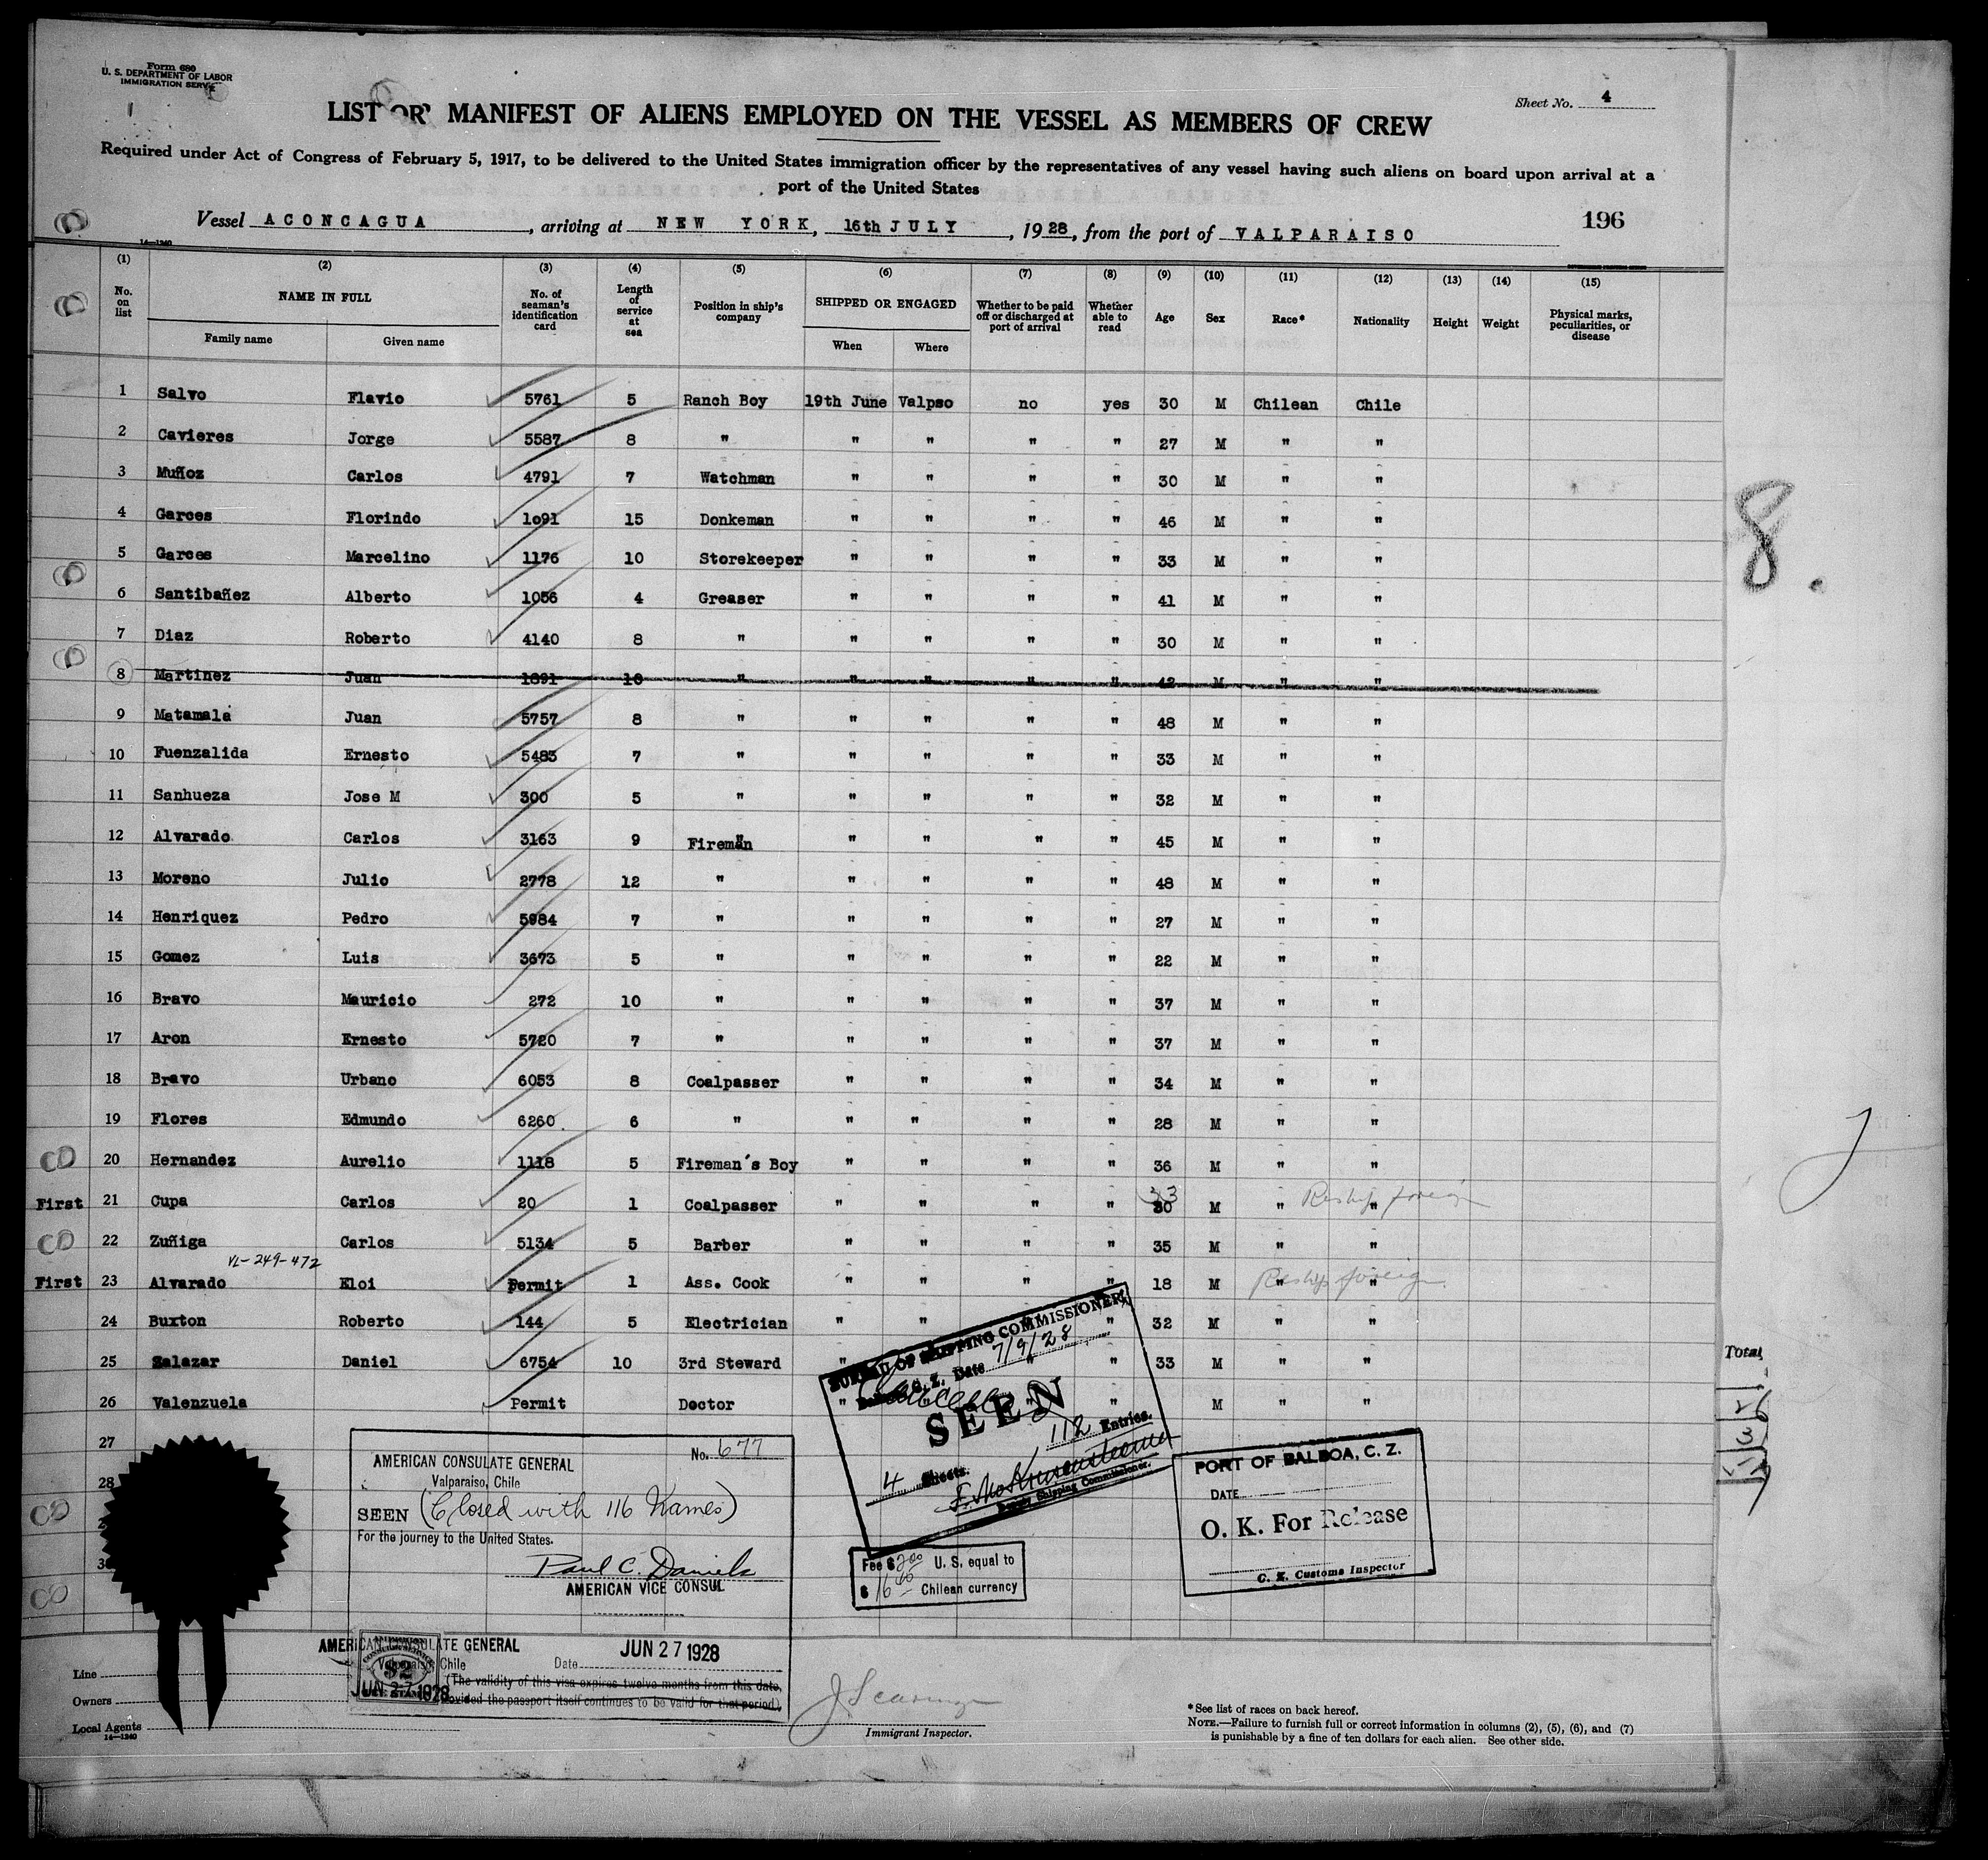 Form 680
U. S. DEPARTMENT OF LABOR
IMMIGRATION SERVICE
Sheet No. 4
LIST OR MANIFEST OF ALIENS EMPLOYED ON THE VESSEL AS MEMBERS OF CREW
Required under Act of Congress of February 5, 1917, to be delivered to the United States immigration officer by the representatives of any vessel having such aliens on board upon arrival at a
port of the United States
196
Vessel ACONCAGUA, arriving at NEW YORK, 16th JULY, 1928, from the port of VALPARAISO
14—1240
(1) (2) (3) (4) (5) (6) (7) (8) (9) (10) (11) (12) (13) (14) (15)
No. on list NAME IN FULL Family name Given name No. of seaman's identification card Length of service at sea Position in ship's company SHIPPED OR ENGAGED When Where Whether to be paid off or discharged at port of arrival Whether able to read Age Sex Race* Nationality Height Weight Physical marks, peculiarities, or disease
1 Salvo Flavio 5761 5 Ranch Boy 19th June Valpso no yes 30 M Chilean Chile
2 Cavieres Jorge 5587 8 " " " " " 27 M " "
3 Muñoz Carlos 4791 7 Watchman " " " " 30 M " "
4 Garces Florindo 1091 15 Donkeman " " " " 46 M " "
5 Garces Marcelino 1176 10 Storekeeper " " " " 33 M " "
6 Santibañez Alberto 1056 4 Greaser " " " " 41 M " "
7 Diaz Roberto 4140 8 " " " " " 30 M " "
8 Martinez Juan 1891 10 " " " " " 42 M " "
9 Matamala Juan 5757 8 " " " " " 48 M " "
10 Fuenzalida Ernesto 5483 7 " " " " " 33 M " "
11 Sanhueza Jose M 300 5 " " " " " 32 M " "
12 Alvarado Carlos 3163 9 Fireman " " " " 45 M " "
13 Moreno Julio 2778 12 " " " " " 48 M " "
14 Henriquez Pedro 5984 7 " " " " " 27 M " "
15 Gomez Luis 3673 5 " " " " " 22 M " "
16 Bravo Mauricio 272 10 " " " " " 37 M " "
17 Aron Ernesto 5720 7 " " " " " 37 M " "
18 Bravo Urbano 6053 8 Coalpasser " " " " 34 M " "
19 Flores Edmundo 6260 6 " " " " " 28 M " "
20 Hernandez Aurelio 1118 5 Fireman's Boy " " " " 36 M " "
First 21 Cupa Carlos 20 1 Coalpasser " " " " 30 33 M " " Reship foreign
22 Zuñiga Carlos 5134 5 Barber " " " " 35 M " "
VL-249-472
First 23 Alvarado Eloi Permit 1 Ass. Cook " " " " 18 M " " Reship foreign
24 Buxton Roberto 144 5 Electrician " " " " 32 M " "
25 Salazar Daniel 6754 10 3rd Steward " " " " 33 M " "
26 Valenzuela Permit Doctor " " " " M " "
27
28
8.
Total
AMERICAN CONSULATE GENERAL No. 677
Valparaiso, Chile
SEEN (Closed with 116 Names)
For the journey to the United States.
Paul C. Daniels
AMERICAN VICE CONSUL
AMERICAN CONSULATE GENERAL
Valparaiso, Chile Date JUN 27 1928
JUN 27 1928
(The validity of this visa expires twelve months from this date,
provided the passport itself continues to be valid for that period.)
$2
BUREAU OF SHIPPING COMMISSIONER
Balboa, C. Z. Date 7/9/28
SEEN
112 Entries.
4 Sheets.
Deputy Shipping Commissioner.
Fee $ 2.00 U. S. equal to
$ 16 Chilean currency
PORT OF BALBOA, C. Z.
DATE
O. K. For Release
C. Z. Customs Inspector
Line
Owners
Local Agents
14—1240
Immigrant Inspector.
*See list of races on back hereof.
NOTE.—Failure to furnish full or correct information in columns (2), (5), (6), and (7)
is punishable by a fine of ten dollars for each alien. See other side.